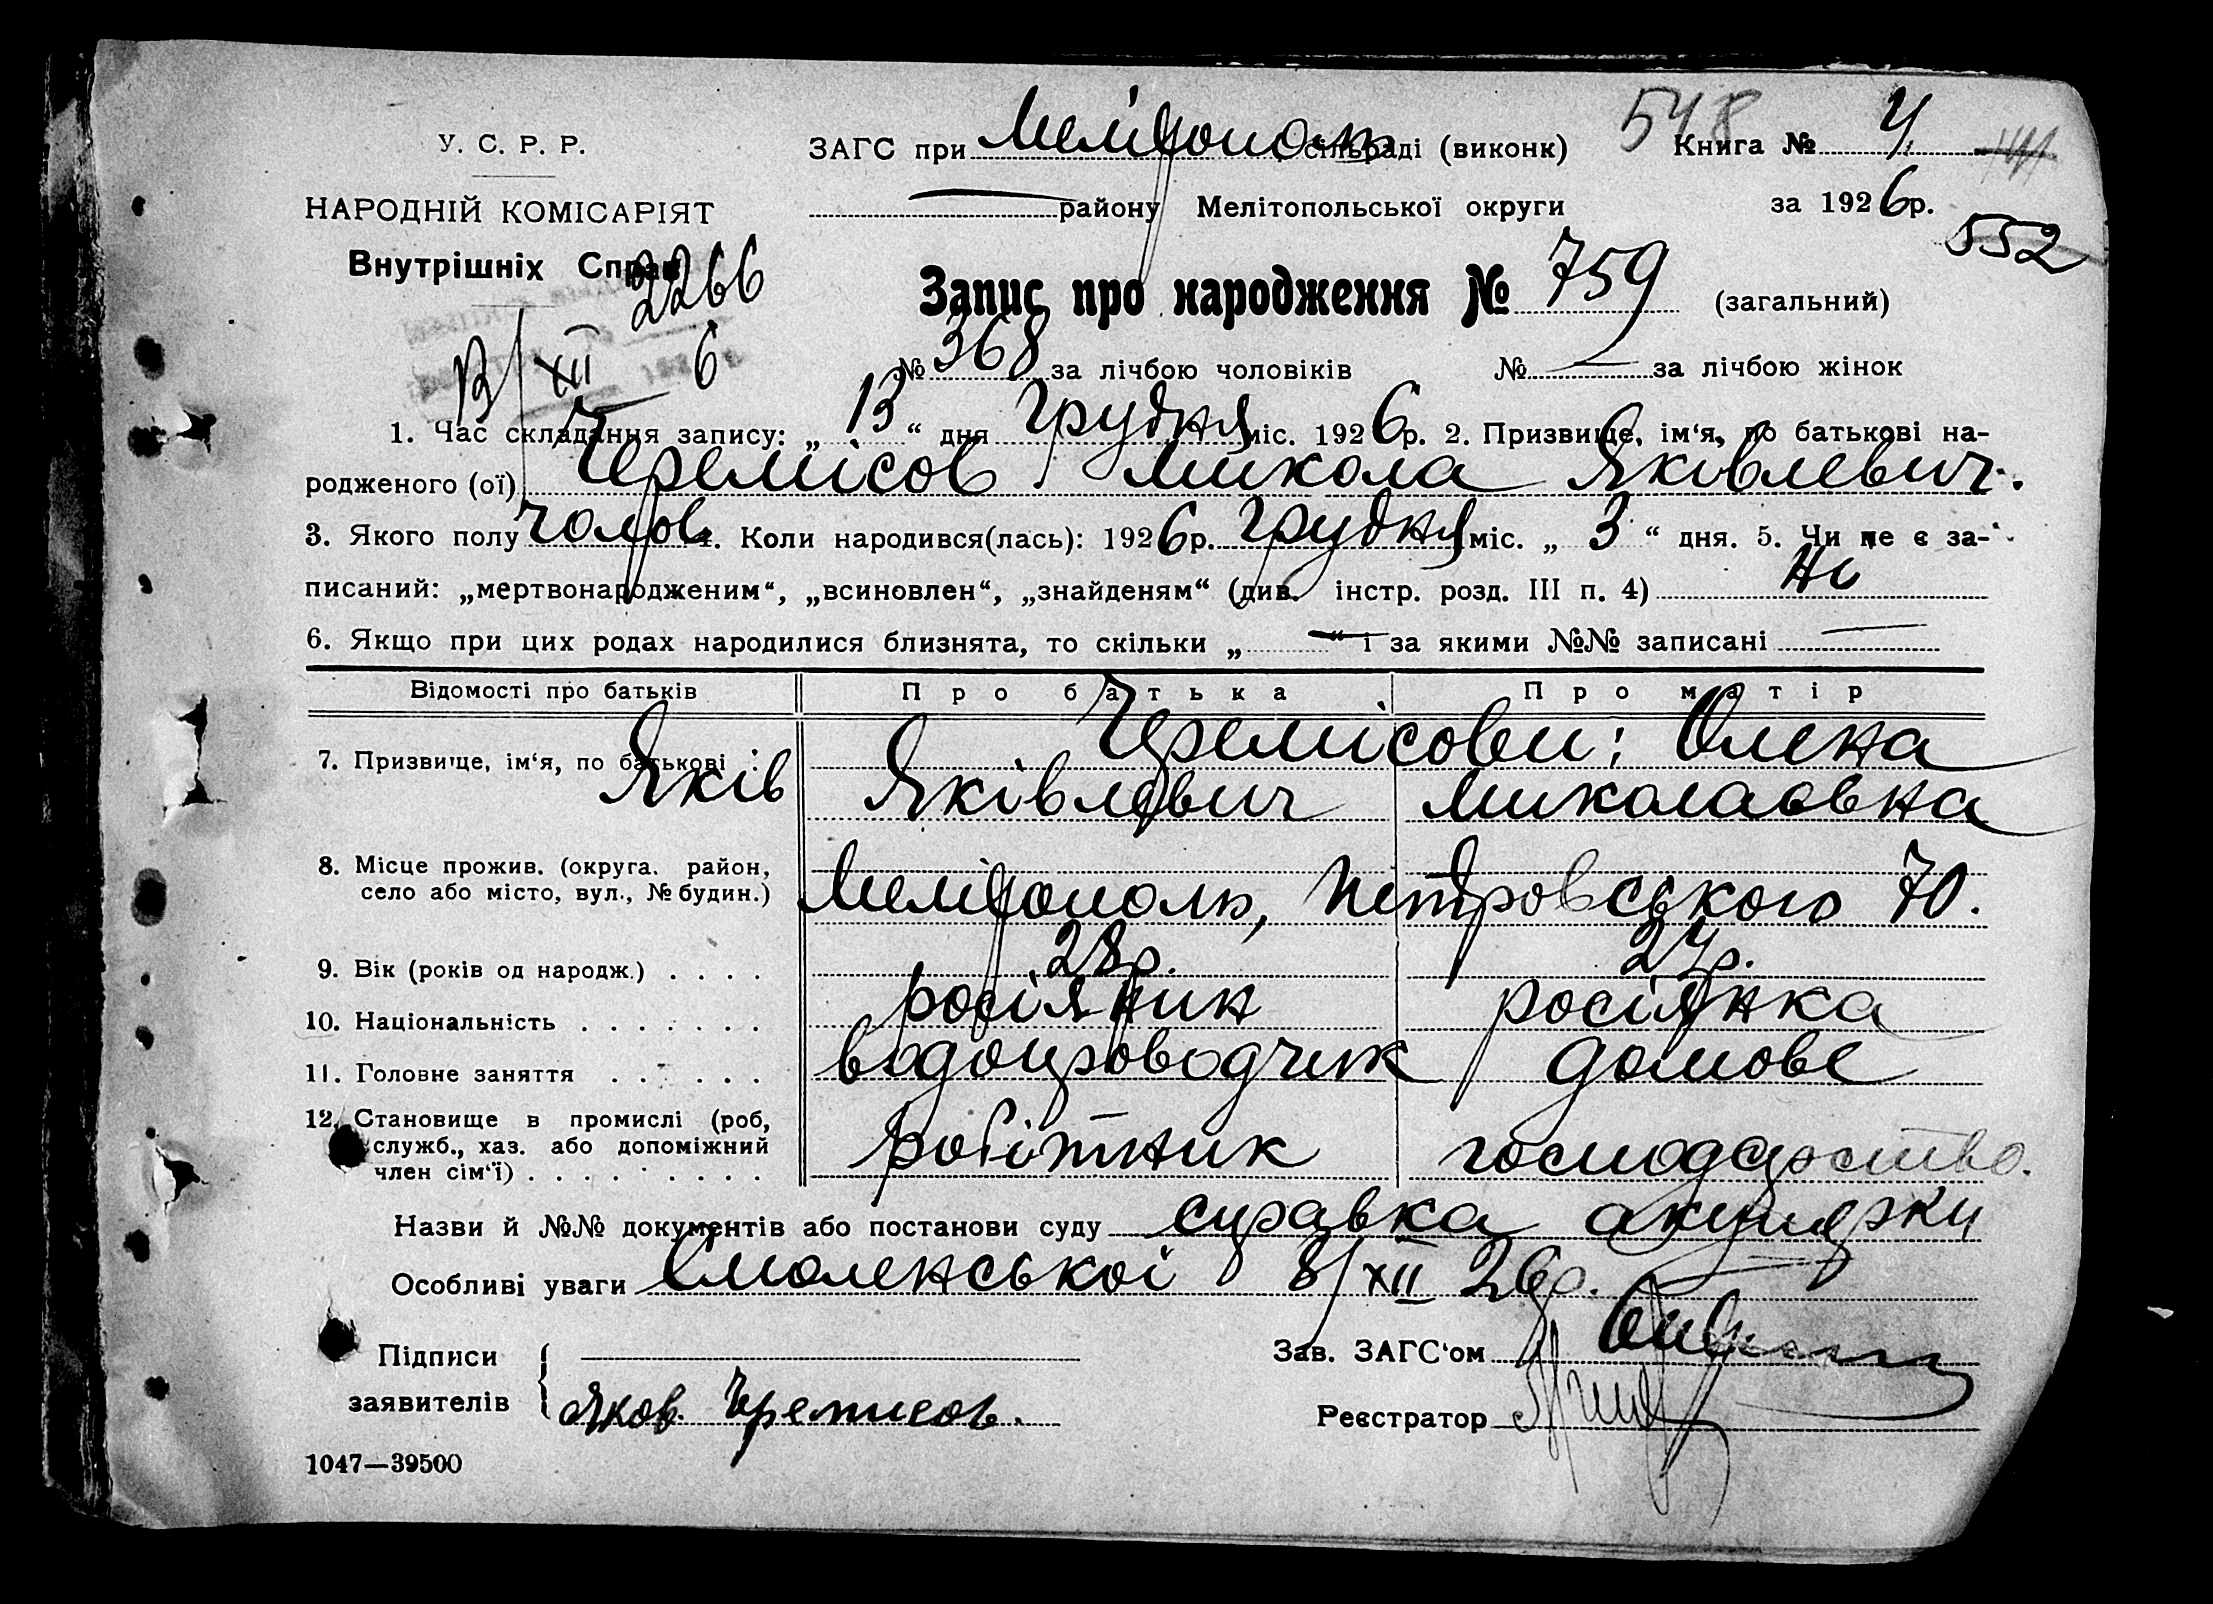 548
У. С. Р. Р.
ЗАГС при Мелітополь сільраді (виконк) Книга № 4
НАРОДНІЙ КОМІСАРІЯТ
району Мелітопольської округи за 1926 р.
552
Внутрішніх Справ
2266
Запис про народження № 759 (загальний)
13/XII 6
№ 368 за лічбою чоловіків № — за лічбою жінок
1. Час складання запису: „ 13 “ дня Грудня міс. 1926 р. 2. Призвище, ім‘я, по батькові на-
родженого (ої) Черемісов Микола Яківлевич.
3. Якого полу чолов. 4. Коли народився(лась): 1926 р. Грудня міс. „ 3 “ дня. 5. Чи не є за-
писаний: „мертвонародженим“, „всиновлен“, „знайденям“ (див. інстр. розд. III п. 4) Ні
6. Якщо при цих родах народилися близнята, то скільки „ — “ і за якими №№ записані —
Відомості про батьків Про батька Про матір
7. Призвище, ім‘я, по батькові : Черемісови: Олена
Яків Яківлевич Миколаовна
8. Місце прожив. (округа, район,
село або місто, вул., № будин.) Мелітополь, Петровського 70.
9. Вік (років од народж.) . . . . 28 р. 24 р.
10. Національність . . . . . . . росіянин росіянка
11. Головне заняття . . . . . . водопроводчик домове
12. Становище в промислі (роб,
служб., хаз. або допоміжний
член сім‘ї) . . . . . . . . робітник господарство.
Назви й №№ документів або постанови суду справка акушерки
Особливі уваги Смоленської 8/XII 26 р.
Підписи
Зав. ЗАГС‘ом
заявителів Яков Черемисов.
Реєстратор
1047—39500